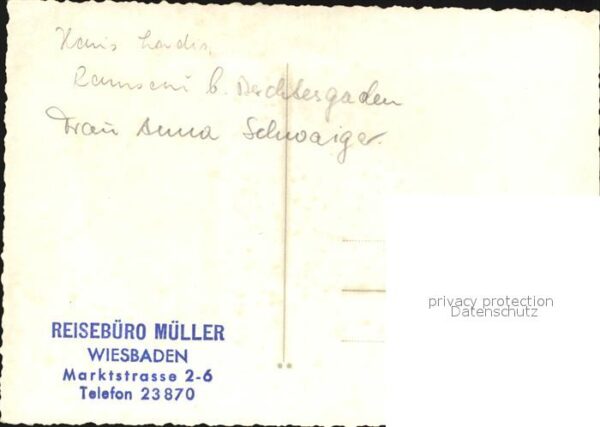 Haus
b. Berchtesgaden
Frau Anna Schwaiger.
privacy protection
Datenschutz
REISEBÜRO MÜLLER
WIESBADEN
Marktstrasse 2-6
Telefon 23870